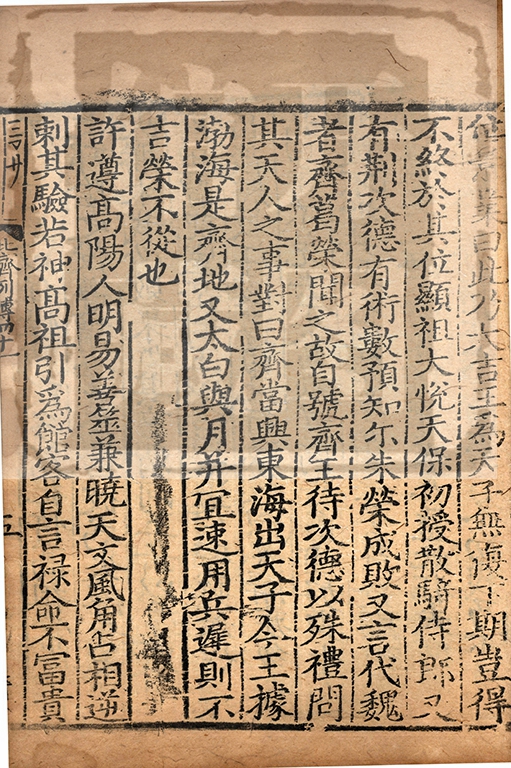 位景業曰此乃大吉王為天子無復下期豈得
不終於其位顯祖大悅天保初授散騎侍郎又
有荆次德有術數預知尒朱榮成敗又言代魏
者齊葛榮聞之故自號齊王待次德以殊禮問
其天人之事對曰齊當興東海出天子今王據
渤海是齊地又太白與月并宜速用兵遲則不
吉榮不從也
許遵髙陽人明易善筮兼曉天文風角占相逆
刺其驗若神髙祖引爲館客自言禄命不富貴
北齊列傳四十一
五